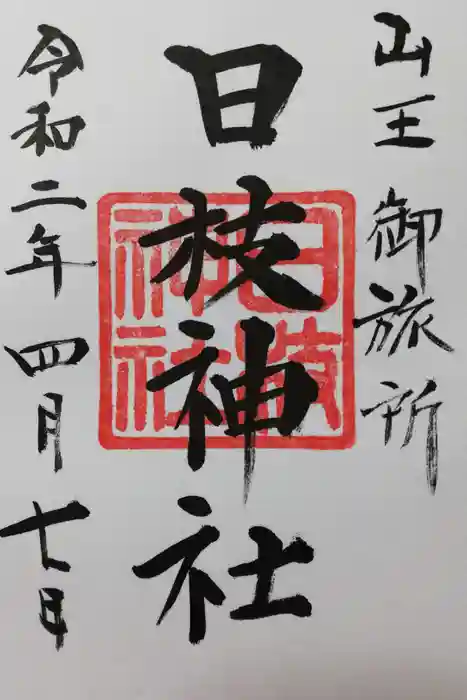 山王 御旅所
日枝神社
日枝神社
令和二年四月七日